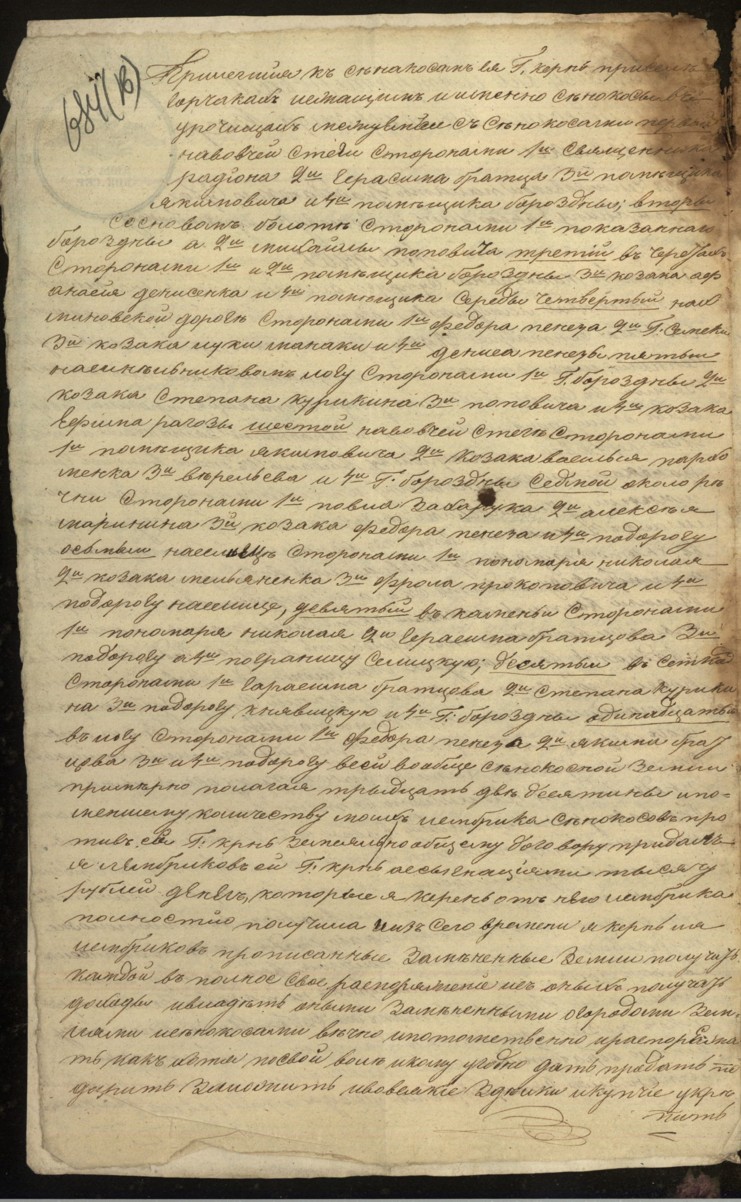 684 (В)
Прилегшия къ сѣнокосамъ ея Г. кернъ при селѣ
горчакахъ лежащимъ и именно сѣнокосы въ
урочищахъ между сѣнокосами первой
на вовчей стеги сторонами 1я священника
радiона 2я Герасима братца 3я помѣщика
якимовича и 4я помѣщика бороздны; второй
сосновомъ болотѣ сторонами 1я показанной
бороздны а 2я михайлы поповича третiй въ
сторонами 1я и 2я помѣщика бороздны 3я козака аф
анасiя денисенка и 4я помѣщика Середы четвертый на
миновской дорогѣ сторонами 1я федора пенеза 2я Г. Семеки
3я козака луки манаки и 4я дениса пенезы пятый
на логу сторонами 1я Г. бороздны 2я
козака Степана курикина 3я поповича и 4я козака
Ефима рагозы шестой на вовчей стегѣ сторонами
1я помѣщика якимовича 2я козака василья пархо
менка 3я и 4я Г. бороздны седмой около рѣ
чки сторонами 1я павла захарука 2я алексѣя
маринина 3я козака федора пенеза и 4я подорогу
осьмый на сторонами 1я пономаря николая
2я козака мельяненка 3я фрола прокоповича и 4я
подорогу девятый въ каменьи сторонами
1я пономаря николая 2я Герасима братцова 3я
подорогу а 4я по границу Селицкую; десятый въ
сторонами 1я Гарасима братцева 2я степана курики
на 3я подорогу княвицкую и 4я Г. бороздны одинадцатый
въ логу сторонами 1я федора пенеза 2я якима брат
цова 3я и 4я подорогу всей вообще сѣнокосной земли
примѣрно полагая тридцать двѣ десятины и по
меньшему количеству моихъ лембрика сѣнокосовъ про
тивъ ея Г. крнъ земель по общему договору придалъ
я лембриковъ ей Г. крнъ ассыгнацiями тысячу
рублей денегъ, которые я кернъ отъ него лембрика
полностiю получила и изъ сего времени я кернъ и я
лембриковъ прописанные замѣненные земли получить
каждой въ полное свое распоряженiе изъ оныхъ получать
доходы и владѣть оными замѣненными огородами зем
лями и сѣнокосами вѣчно и потомственно и распоряжа
ть какъ хотя по свой волѣ и кому угодно дать продать
дарить заложить и во всякiе здѣлки и купчiе укрѣ
пить